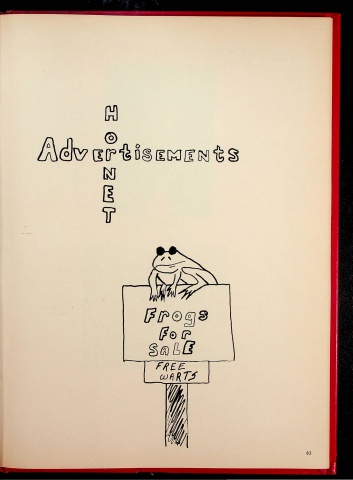 HorNET
AdvErtisEMENts
Frogs
For
SaLE
FREE
WARTS
83